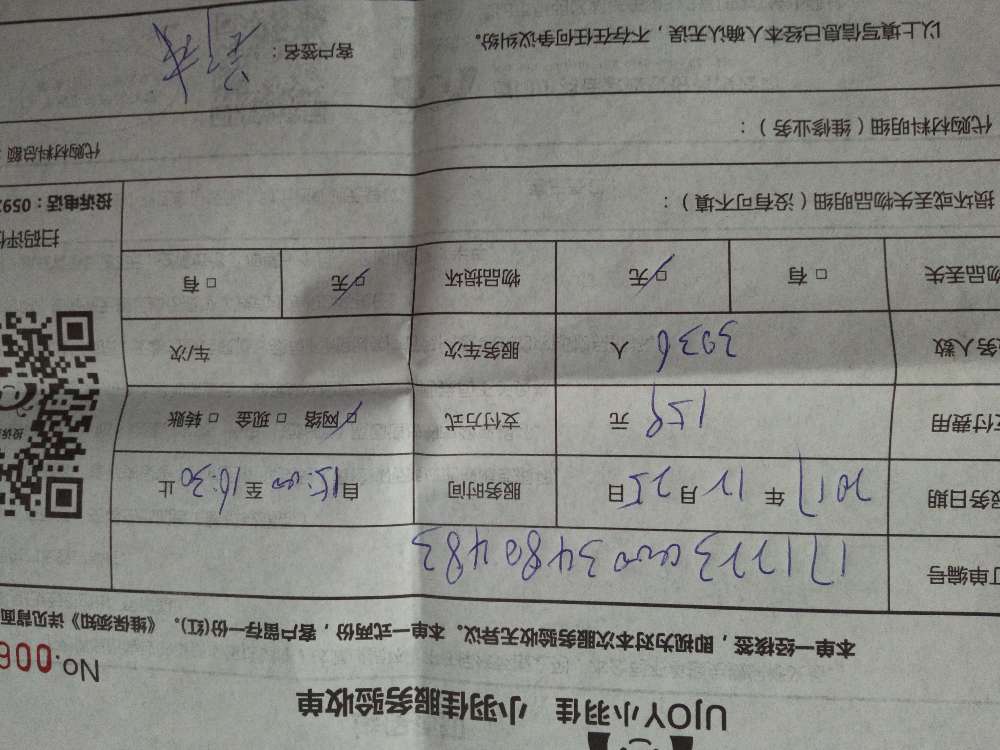 UJOY小羽佳 小羽佳服务验收单
No.006
本单一经接签，即视为对本次服务验收无异议。本单一式两份，客户留存一份(红)。《维保须知》详见背面
订单编号
服务日期 2017 年 12 月 25 日 服务时间 自 15:00 至 16:30 止
支付费用 159 元 支付方式 □ 网络 □ 现金 □ 转账
服务人数 3036 人 服务车次 车/次
物品丢失 □ 有 □ 无 物品损坏 □ 无 □ 有
扫码评价
投诉电话：0592
损坏或丢失物品明细（没有可不填）：
代购材料明细（维修业务）： 代购材料总额：
以上填写信息已经本人确认无误，不存在任何争议纠纷。 客户签名：